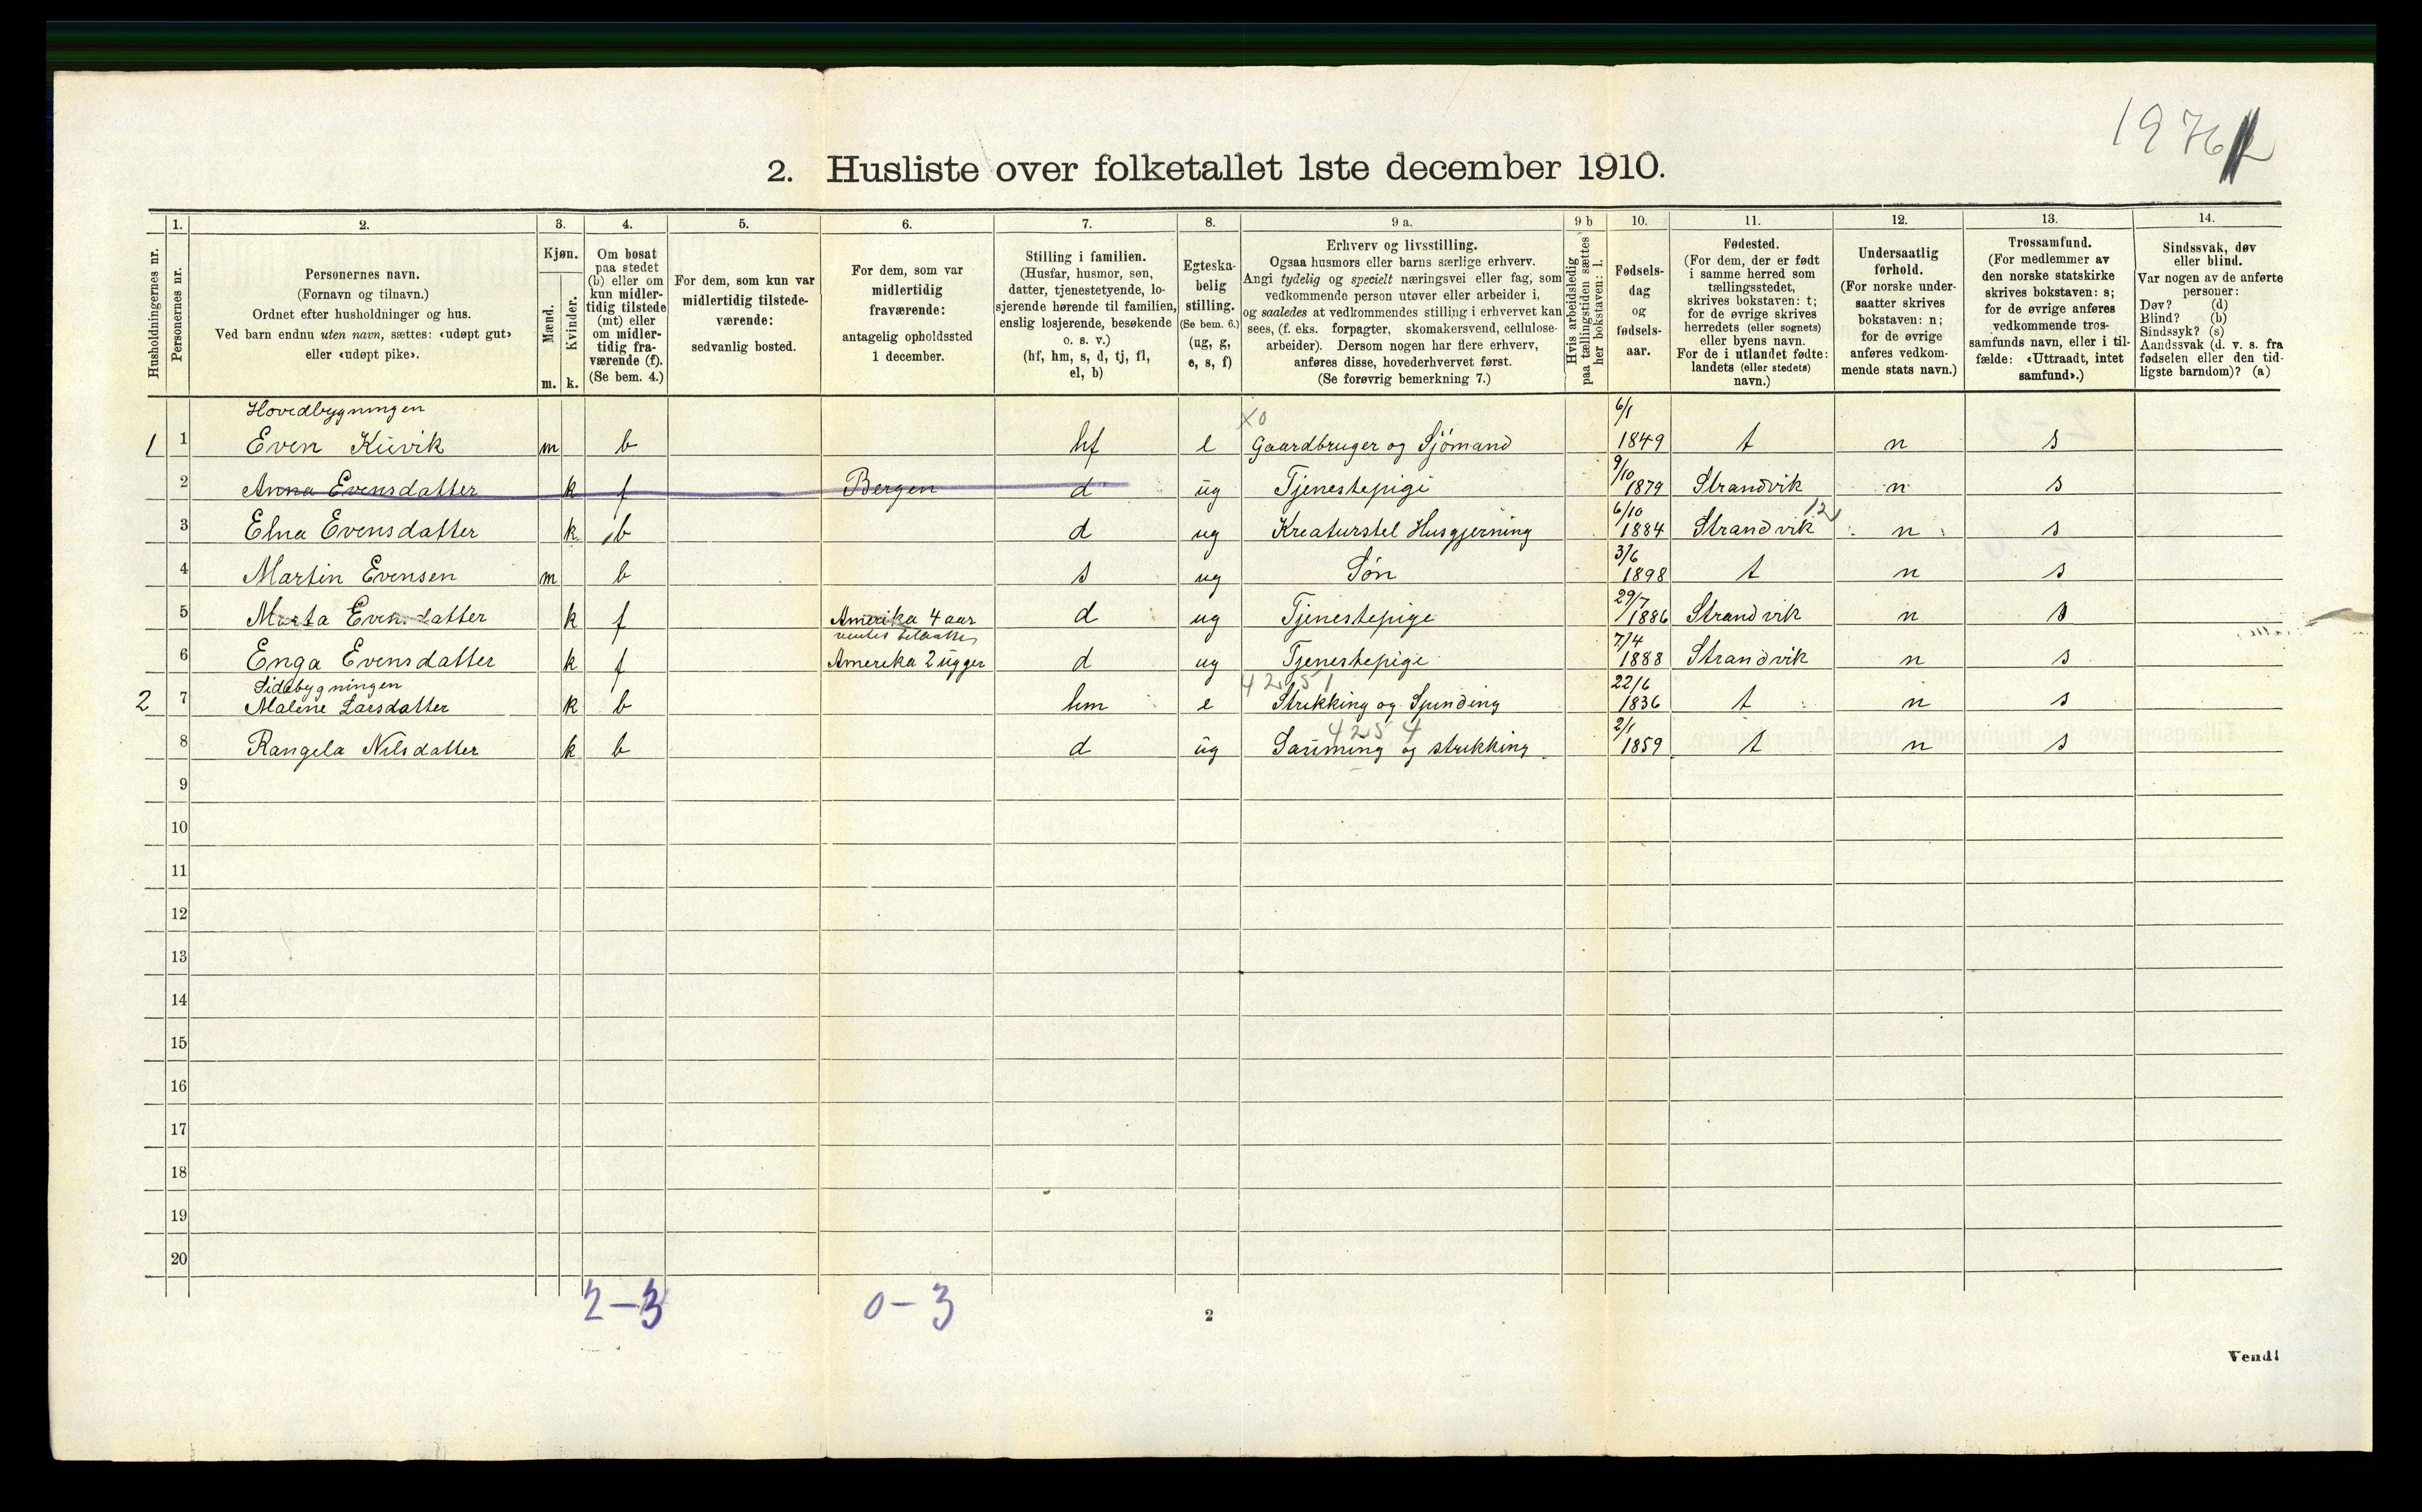 1976
2. Husliste over folketallet 1ste december 1910.
1. 2. 3. 4. 5. 6. 7. 8. 9 a. 9 b 10. 11. 12. 13. 14.
Husholdningernes nr.
Personernes nr.
Personernes navn.
(Fornavn og tilnavn.)
Ordnet efter husholdninger og hus.
Ved barn endnu uten navn, sættes: «udøpt gut»
eller «udøpt pike».
Kjøn.
Mænd.
Kvinder.
m. k.
Om bosat
paa stedet
(b) eller om
kun midler-
tidig tilstede
(mt) eller
om midler-
tidig fra-
værende (f).
(Se bem. 4.)
For dem, som kun var
midlertidig tilstede-
værende:
sedvanlig bosted.
For dem, som var
midlertidig
fraværende:
antagelig opholdssted
1 december.
Stilling i familien.
(Husfar, husmor, søn,
datter, tjenestetyende, lo-
sjerende hørende til familien,
enslig losjerende, besøkende
o. s. v.)
(hf, hm, s, d, tj, fl,
el, b)
Egteska-
belig
stilling.
(Se bem. 6.)
(ug, g,
e, s, f)
Erhverv og livsstilling.
Ogsaa husmors eller barns særlige erhverv.
Angi tydelig og specielt næringsvei eller fag, som
vedkommende person utøver eller arbeider i,
og saaledes at vedkommendes stilling i erhvervet kan
sees, (f. eks. forpagter, skomakersvend, cellulose-
arbeider). Dersom nogen har flere erhverv,
anføres disse, hovederhvervet først.
(Se forøvrig bemerkning 7.)
Hvis arbeidsledig
paa tællingstiden sættes
her bokstaven: l.
Fødsels-
dag
og
fødsels-
aar.
Fødested.
(For dem, der er født
i samme herred som
tællingsstedet,
skrives bokstaven: t;
for de øvrige skrives
herredets (eller sognets)
eller byens navn.
For de i utlandet fødte:
landets (eller stedets)
navn.)
Undersaatlig
forhold.
(For norske under-
saatter skrives
bokstaven: n;
for de øvrige
anføres vedkom-
mende stats navn.)
Trossamfund.
(For medlemmer av
den norske statskirke
skrives bokstaven: s;
for de øvrige anføres
vedkommende tros-
samfunds navn, eller i til-
fælde: «Uttraadt, intet
samfund».)
Sindssvak, døv
eller blind.
Var nogen av de anførte
personer:
Døv? (d)
Blind? (b)
Sindssyk? (s)
Aandssvak (d. v. s. fra
fødselen eller den tid-
ligste barndom)? (a)
Hovedbygningen
X0 6/1
1 1 Even Kuvik m b hf e Gaardbruger og Sjömand 1849 t n s
2 Anna Evensdatter k f Bergen d ug Tjenestepige 9/10 1879 Strandvik n s
12
3 Elna Evensdatter k b d ug Kreaturstel Husgjerning 6/10 1884 Strandvik n s
4 Martin Evensen m b s ug Søn 3/6 1898 t n s
5 Marta Evensdatter k f Amerika 4 aar d ug Tjenestepige 29/7 1886 Strandvik n s
6 Enga Evensdatter k f Amerika 2 ugger d ug Tjenestepige 7/4 1888 Strandvik n s
Sidebygningen
4251
2 7 Malene Larsdatter k b hm e Strikking og Spinding 22/6 1836 t n s
4254
8 Rangela Nilsdatter k b d ug Sauming og strikking 2/1 1859 t n s
9
10
11
12
13
14
15
16
17
18
19
20
2-3 0-3
2
Vend!